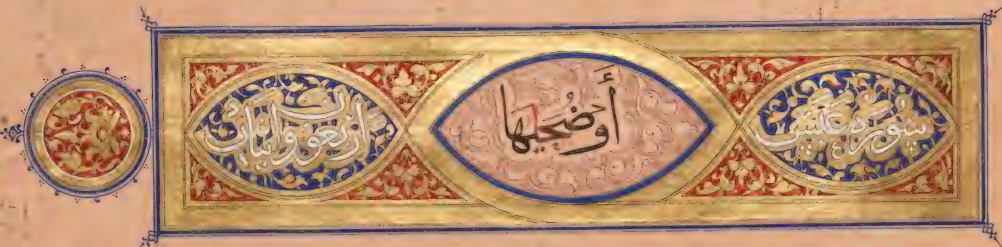 سورة عبس أَوْ ضُحَيهَا أربعون وآيتان